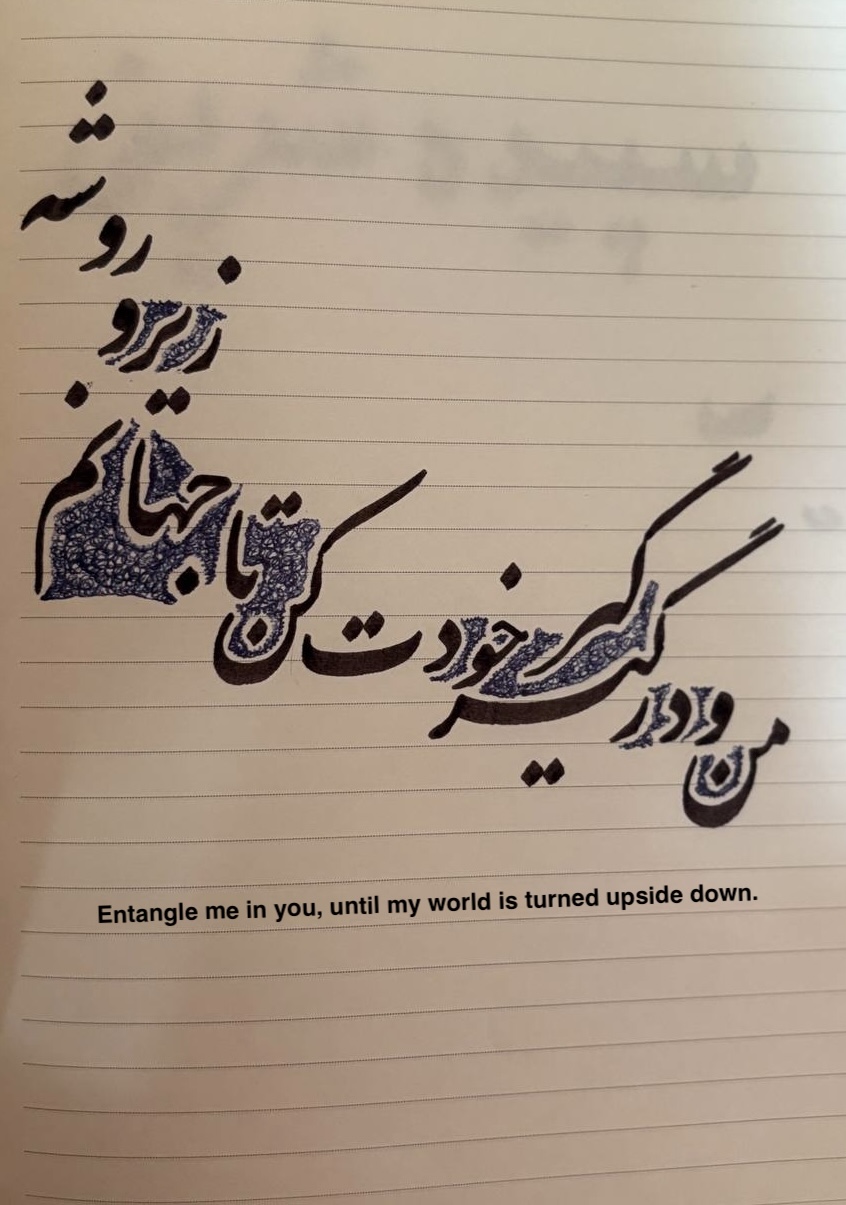 من و در گیر گیر خودت کن تا جهانم
زیر و
رو شه
Entangle me in you, until my world is turned upside down.